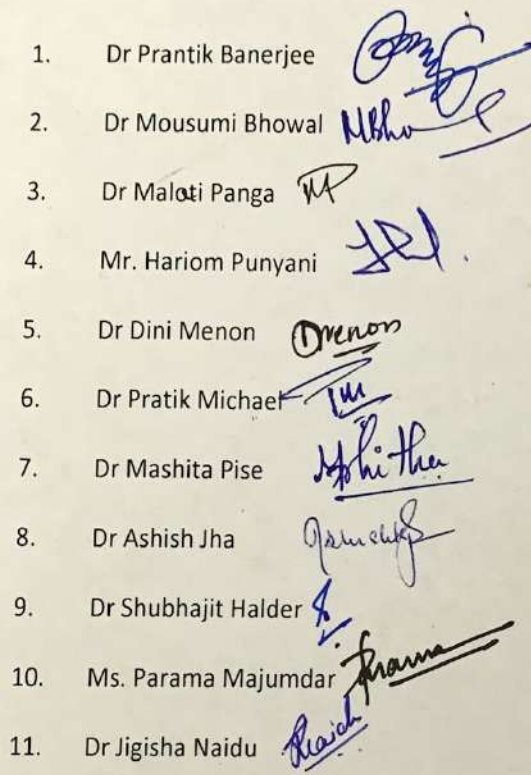 1. Dr Prantik Banerjee
2. Dr Mousumi Bhowal MBho
3. Dr Maloti Panga MP
4. Mr. Hariom Punyani
5. Dr Dini Menon Dmenon
6. Dr Pratik Michael
7. Dr Mashita Pise
8. Dr Ashish Jha
9. Dr Shubhajit Halder
10. Ms. Parama Majumdar Parama
11. Dr Jigisha Naidu